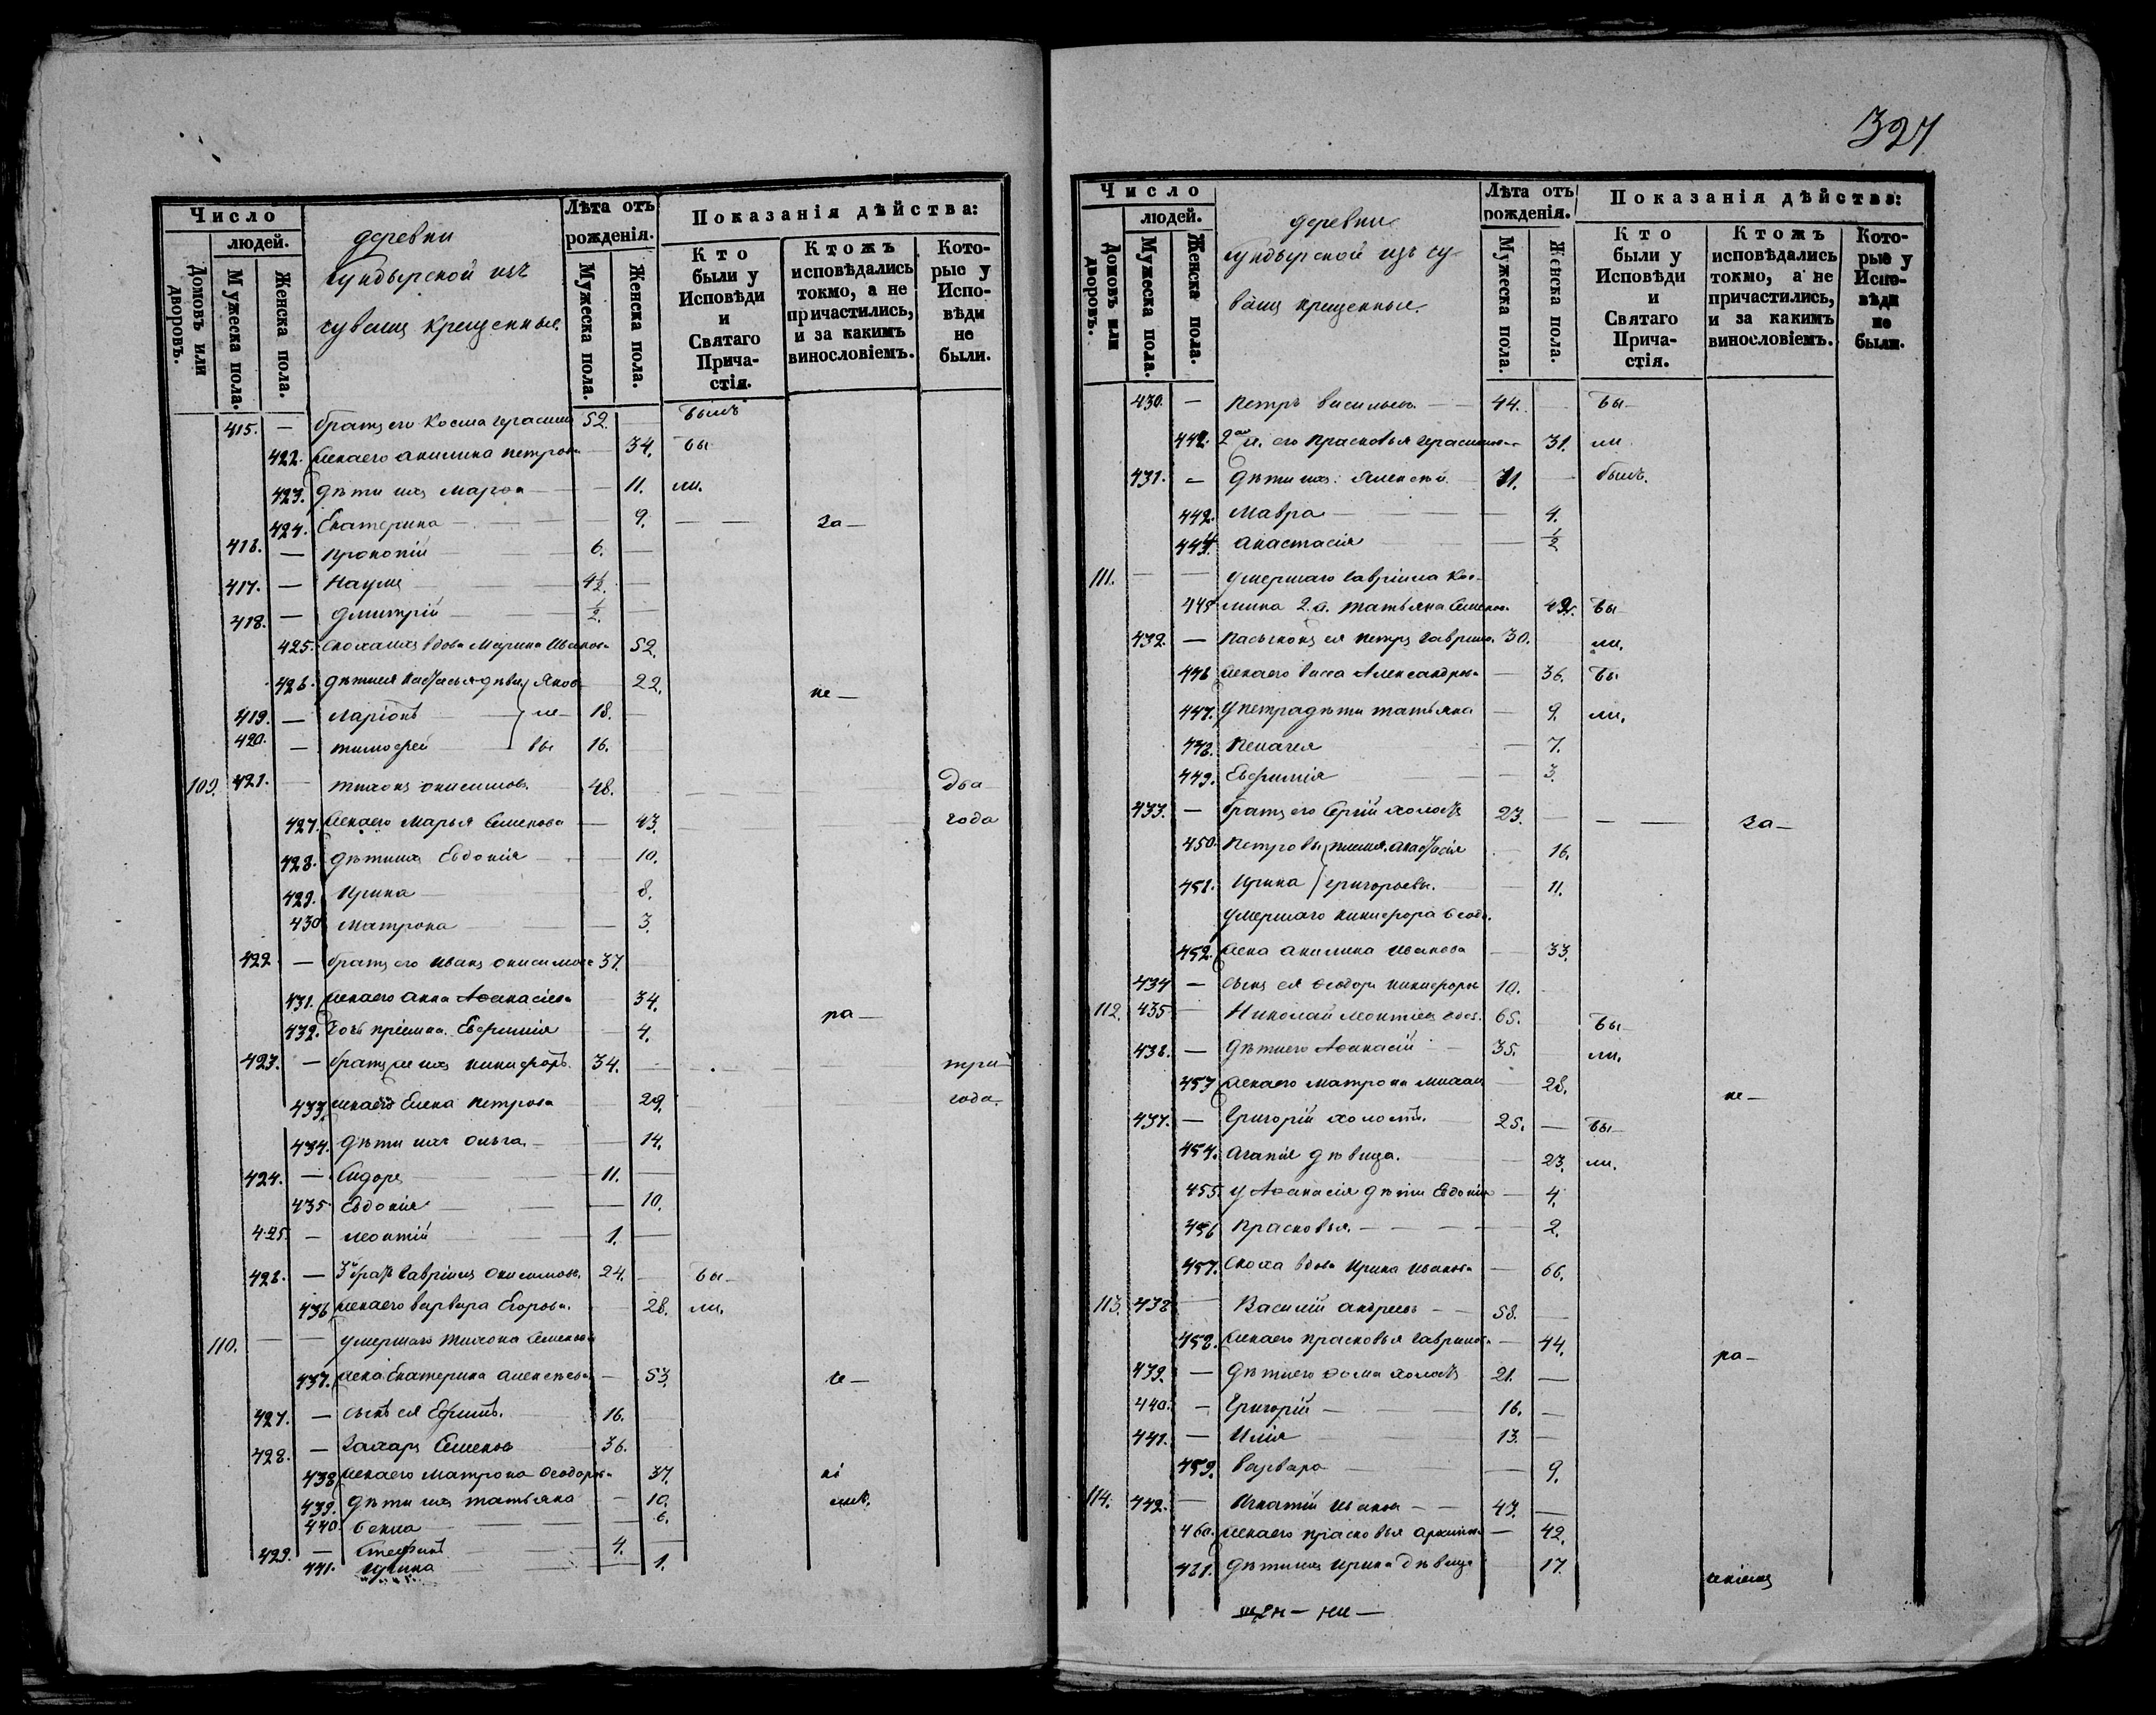 Число
людей.
Домовъ или дворовъ.
Мужеска пола.
Женска пола.
деревни
Сундырской изъ
чувашъ крещенные.
Лѣта отъ рожденія.
Мужеска пола.
Женска пола.
Показанія дѣйства:
Кто были у Исповѣди и Святаго Причастія.
Ктожъ исповѣдались токмо, а не причастились, и за какимъ винословіемъ.
Которые у Исповѣди не были.
415. — братъ его Косма Герасимо 52. — былъ
422. жена его Акилина Петрова — 34. бы
423. дѣти ихъ Марѳа — 11. ли.
424. Екатерина — 9. — — за—
416. — Прокопій 6. —
417. — Наумъ 4½. —
418. — Дмитрій ½. —
425. сноха ихъ вдова Марина Иванова 52.
426. дѣти ея Настасья дѣвица Яков 22. не—
419. — Ларіонъ ле— 18. —
420. — Тимоѳей вы 16.
109. 421. — Тихонъ Онисимовъ 48. — — два
427. жена его Марья Семенова — 43. года
428. дѣти ихъ Евдокія — 10.
429. Ирина — 8.
430 Матрона — 3.
422. — братъ его Иванъ Онисимовъ 37.
431. жена его Анна Аѳанасіева 34.
432. дочь пріемна. Евфимія — 4. ра—
423. — братъ ихъ Никифоръ 34. — — три
433. жена его Елена Петрова 29. года.
434. дѣти ихъ Ольга. — 14.
424. — Сидоръ 11. —
435. Евдокія — 10.
425. — Леонтій 1. —
426. — 3й братъ Гавріилъ Онисимовъ. 24. — бы—
436. жена его Варвара Егорова. 28. ли.
110. — — умершаго Тихона Семенова
437. жена Екатерина Алексѣева — 53. се—
427. — сынъ ея Ефимъ. 16.
428. — Захаръ Семеновъ 36.
438. жена его Матрона Ѳеодорова 37.
439. дѣти ихъ Татьяна — 10.
440. Ѳекла — 6.
429. — Стефанъ 4. —
441. Ирина — 1.
327
Число
людей.
Домовъ или дворовъ.
Мужеска пола.
Женска пола.
деревни
Сундырской изъ чу-
вашъ крещенные.
Лѣта отъ рожденія.
Мужеска пола.
Женска пола.
Показанія дѣйства:
Кто были у Исповѣди и Святаго Причастія.
Ктожъ исповѣдались токмо, а не причастились, и за какимъ винословіемъ.
Которые у Исповѣди не были.
430. — Петръ Васильевъ — 44. бы—
442. 2ая ж. его Прасковья Герасимова 31. ли
431. — дѣти ихъ: Алексѣй 11. — былъ.
442. Мавра — 4.
443. Анастасія — ½
111. — — умершаго Гавріила Кос-
445 мина 2.ж. Татьяна Семенов 42. бы—
432. — пасынокъ ея Петръ Гаврило. 30. ли.
446 жена его Васса Александрова — 36. бы
447. у Петра дѣти Татьяна — 9. ли.
448. Пелагея — 7.
449. Евфимія — 3.
433. — братъ его Сергій холостъ 23. — — за—
450. Петровы племя. Анастасія 16.
451. Ирина Григорьевы. — 11.
умершаго Никифора Ѳеодо.
452. жена Акилина Иванова — 33.
434 — сынъ ея Ѳеодоръ Никифоровъ 10.
112. 435 — Николай Леонтіев вдов. 65. бы—
436. — дѣти его Аѳанасій 35. ли.
453 жена его Матрона Михаил — 28. не—
437. — Григорій холостъ. 25. — бы—
454. Агапія дѣвица. — 23. ли.
455. у Аѳанасія дѣти Евдокія — 4.
456 Прасковья. — 2.
457. Сноха вдова Ирина Иванова — 66.
113. 438 — Василій Андреевъ — 58. —
458. жена его Прасковья Гаврилова — 44.
439. — дѣти его Ѳома холостъ 21. — ра—
440. — Григорій — 16. —
441. — Илія 13. —
459. Варвара — 9.
114. 442. — Игнатій Иванов — 43. —
460. жена его Прасковья Архипов — 42.
461. дѣти ихъ Ирина дѣвица 17.